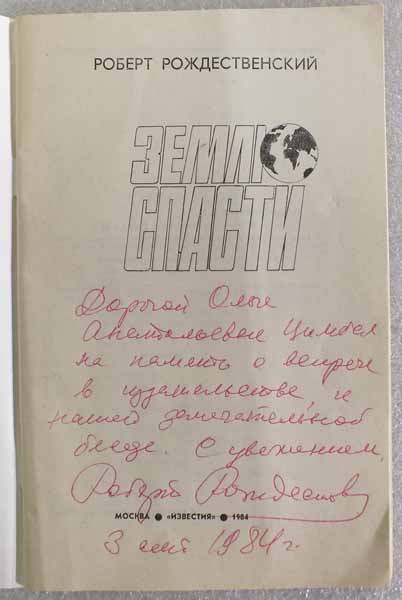 РОБЕРТ РОЖДЕСТВЕНСКИЙ
ЗЕМЛЮ
СПАСТИ
Дорогой Ольге
Анатольевне Цимбал
на память о встрече
в издательстве и
нашей замечательной
беседе. С уважением,
Роберт Рождеств
МОСКВА ● «ИЗВЕСТИЯ» ● 1984
3 сент 1984 г.